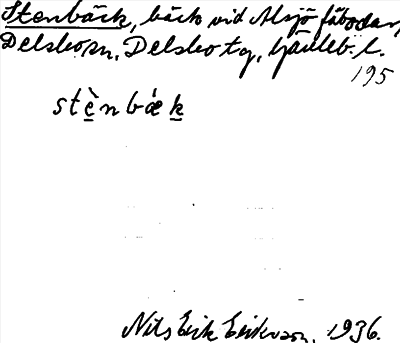 Stenbäck, bäck vid Alsjö fäbodar,
Delsbo sn, Delsbo tg, Gävleb. l.
195
stè̱nbǽḵ
Nils Erik Eriksson, 1936.